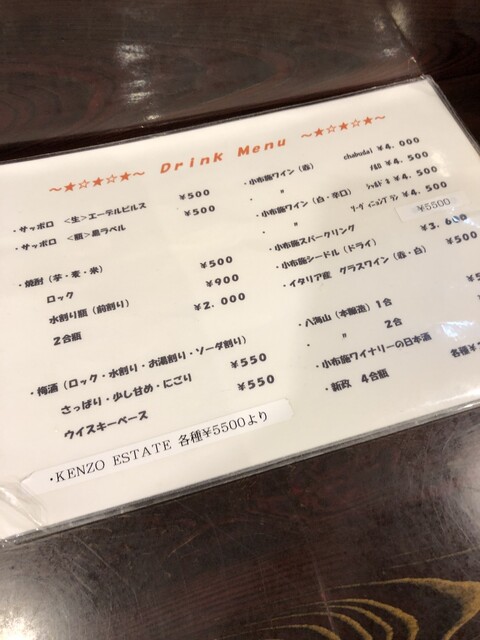 ～★☆★☆★～ Drink Menu ～★☆★☆★～
・サッポロ <生>エーデルピルス ¥500
・サッポロ <瓶>黒ラベル ¥500
・焼酎（芋・麦・米）
ロック ¥500
水割り瓶（前割り） ¥900
2合瓶 ¥2.000
・梅酒（ロック・水割り・お湯割り・ソーダ割り）
さっぱり・少し甘め・にごり ¥550
ウイスキーベース ¥550
・KENZO ESTATE 各種¥5500より
・小布施ワイン（赤） chabudai ¥4.000
・ 〃 ¥4.500
・小布施ワイン（白・辛口） ¥4.500
・ 〃 ¥4.500
・小布施スパークリング ¥5500
・小布施シードル（ドライ） ¥3.600
・イタリア産 グラスワイン（赤・白） ¥500
・八海山（本醸造）1合 ¥500
・ 〃 2合
・小布施ワイナリーの日本酒
・新政 4合瓶 各種¥